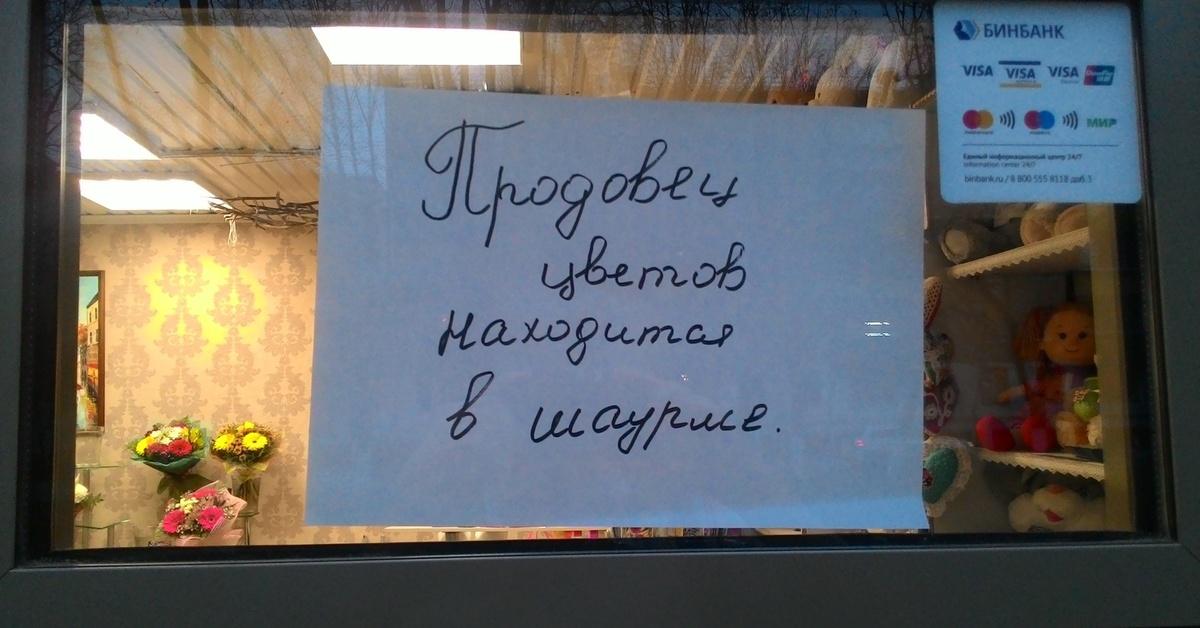 Продовец
цветов
находится
в шаурме.
БИНБАНК
VISA VISA VISA
МИР
Единый информационный центр 24/7
information center 24/7
binbank.ru / 8 800 555 8118 доб.3